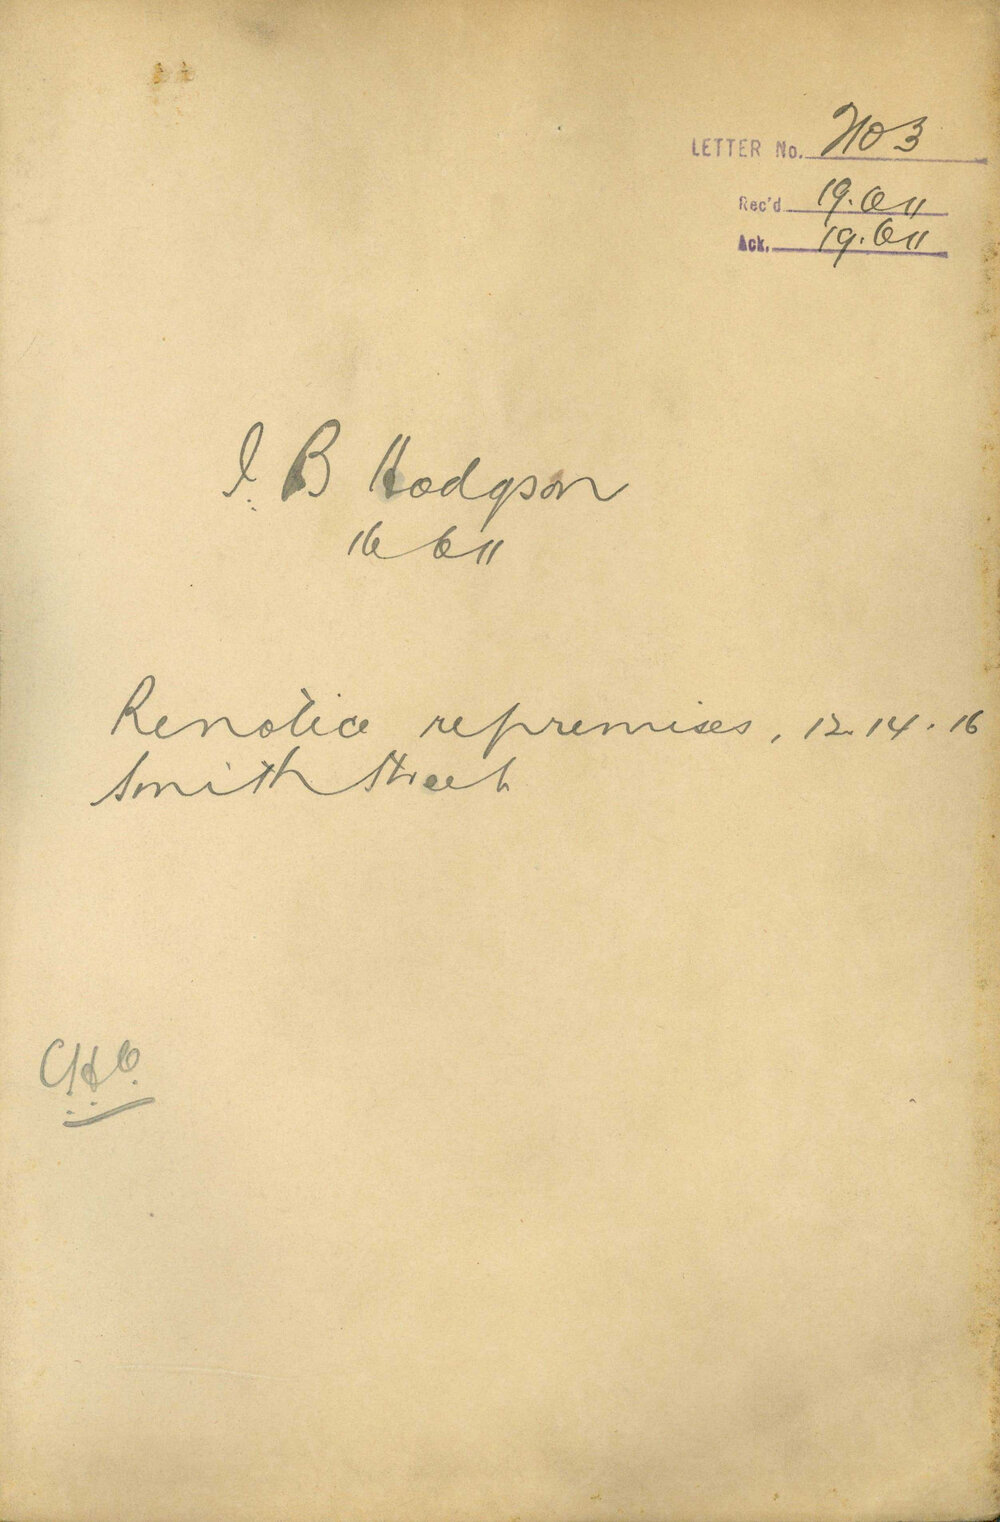 LETTER No. 2103
Rec'd 19.6 11
Ack. 19.6 11
J. B Hodgson
16 6 11
Re notice re premises, 12.14.16
Smith Street